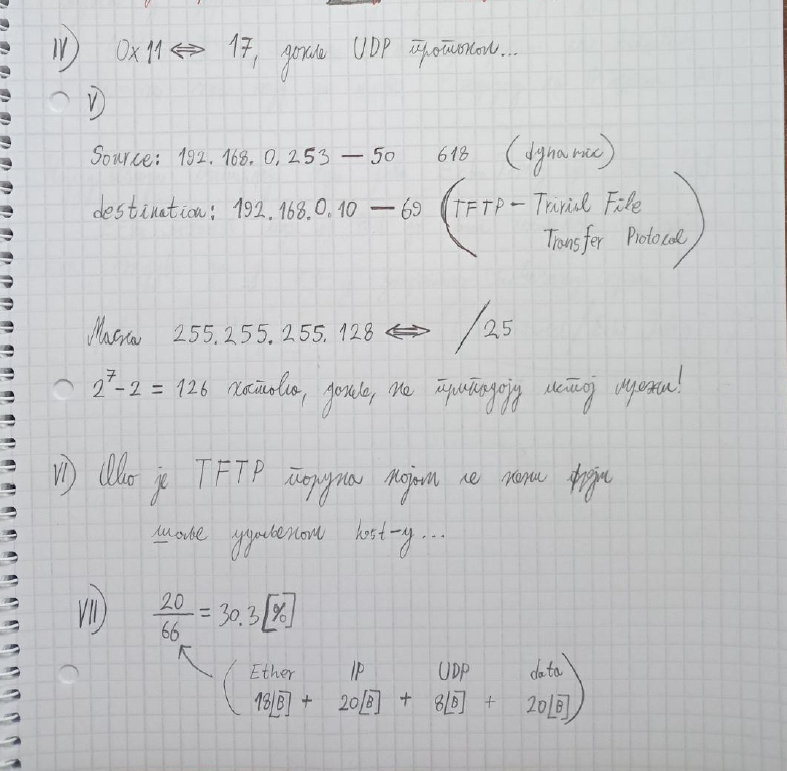 IV) 0x11 ⇔ 17, дакле UDP протокол...
V)
Source: 192.168.0.253 — 50 618 (dynamic)
destination: 192.168.0.10 — 69 (TFTP – Trivial File
Transfer Protocol)
Маска 255.255.255.128 ⇔ /25
2⁷-2 = 126 хостова, дакле, не припадају истој мрежи!
VI) Ово је TFTP порука којом се неки фајл
шаље удаљеном host-у...
VII) 20/66 = 30.3 [%]
(Ether IP UDP data
18[B] + 20[B] + 8[B] + 20[B])